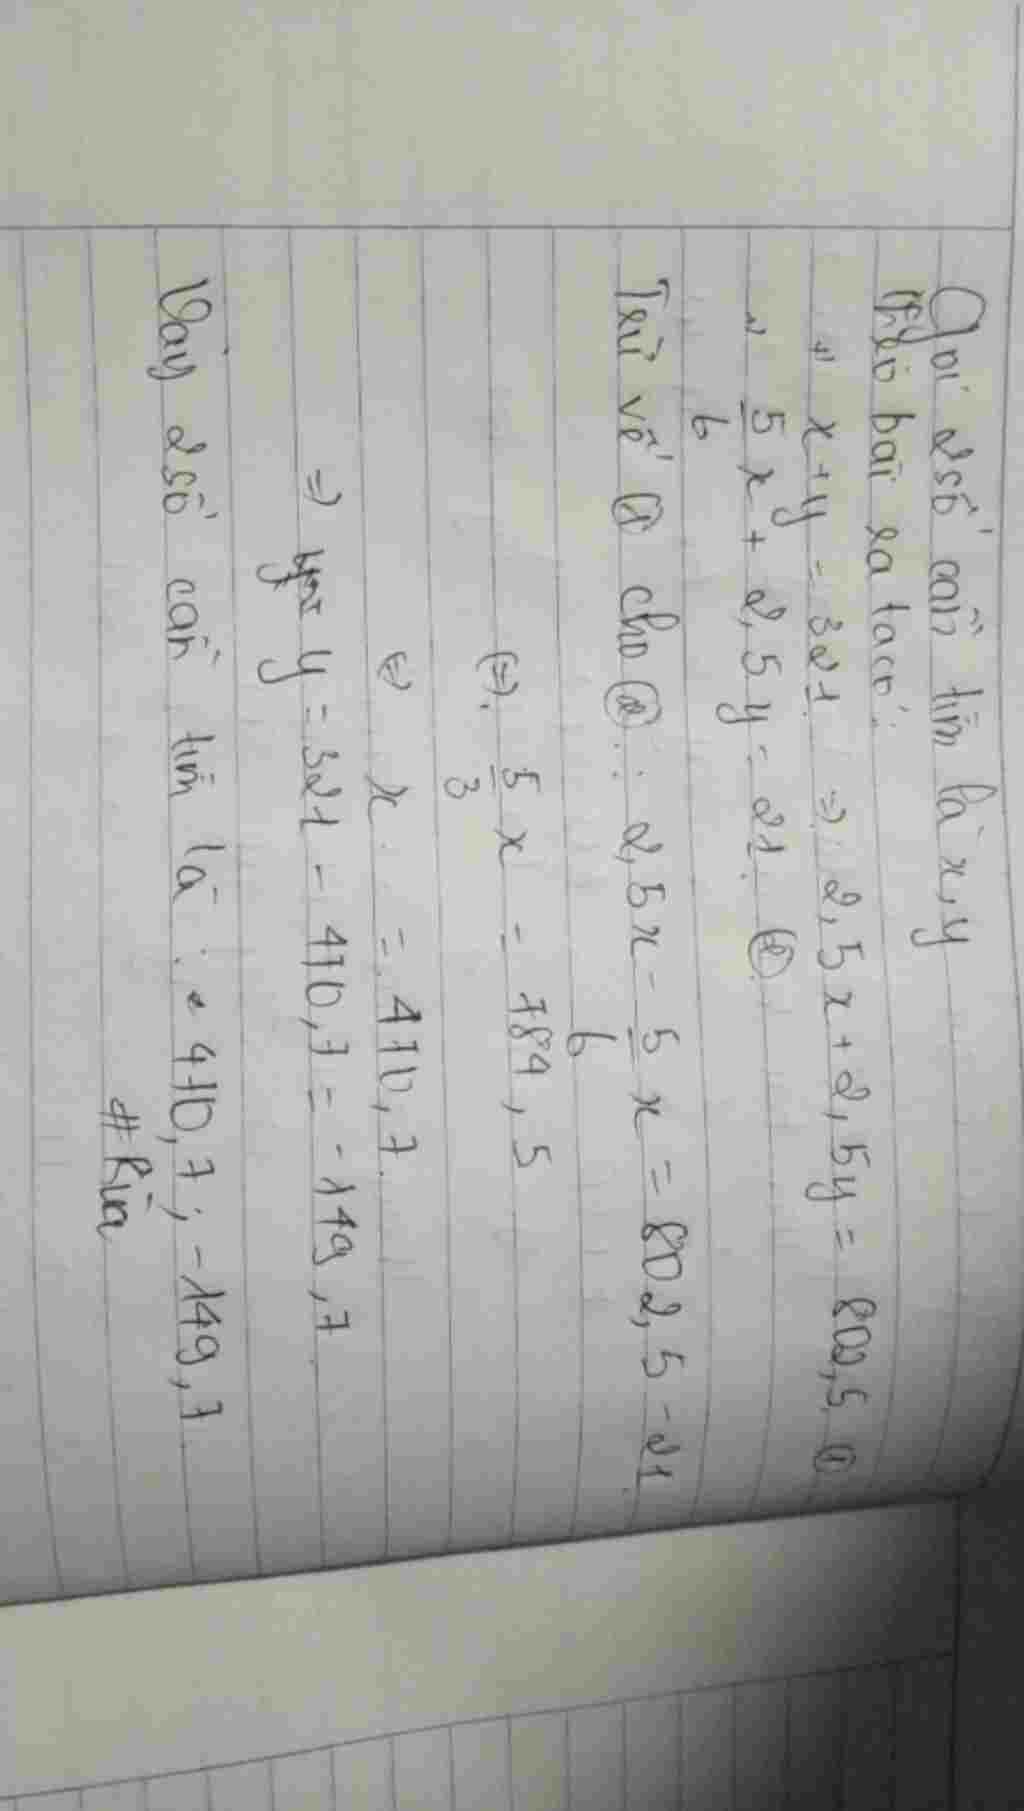 Gọi 2 số cần tìm là x, y
Theo bài ra ta có:
+) x + y = 321 => 2,5x + 2,5y = 802,5 (1)
+) 5/6 x + 2,5y = 21 (2)
Trừ vế (1) cho (2): 2,5x - 5/6 x = 802,5 - 21
(=) 5/3 x = 781,5
(=) x = 470,7
=> y = 321 - 470,7 = -149,7
Vậy 2 số cần tìm là: 470,7; -149,7
#Rùa